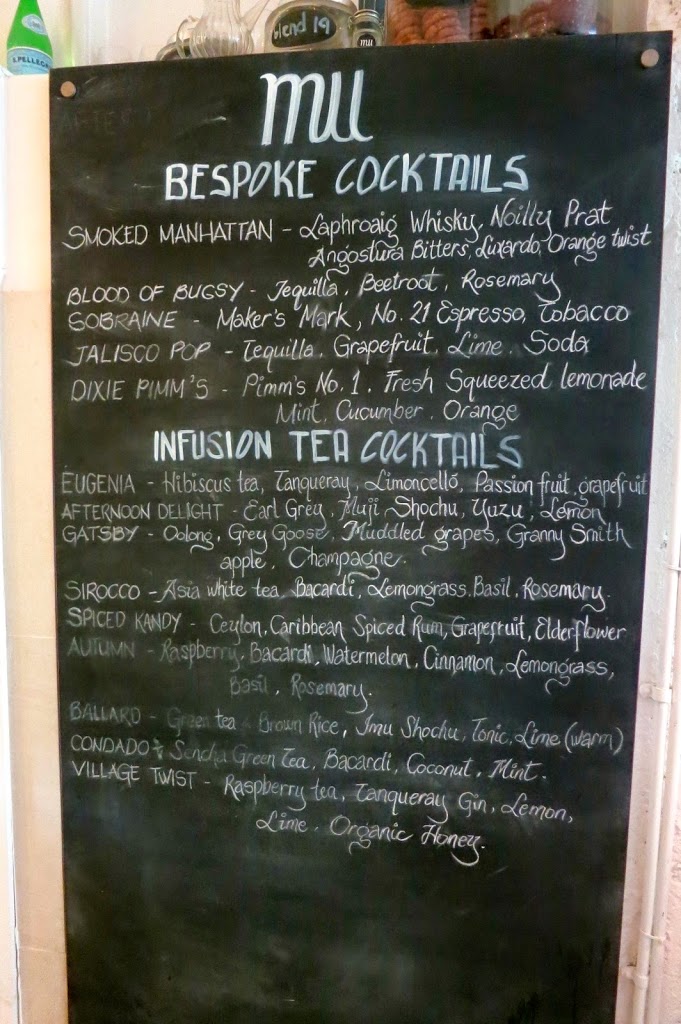 S.PELLEGRI
blend 19
mu
mu
BESPOKE COCKTAILS
SMOKED MANHATTAN - Laphroaig Whisky, Noilly Prat
Angostura Bitters, Luxardo, Orange twist
BLOOD OF BUGSY - Tequilla, Beetroot, Rosemary
SOBRAINE - Maker's Mark, No. 21 Espresso, Tobacco
JALISCO POP - Tequilla, Grapefruit, Lime, Soda
DIXIE PIMM'S - Pimm's No. 1, Fresh Squeezed lemonade
Mint, Cucumber, Orange
INFUSION TEA COCKTAILS
EUGENIA - Hibiscus tea, Tanqueray, Limoncello, Passion fruit, grapefruit
AFTERNOON DELIGHT - Earl Grey, Muji Shochu, Yuzu, Lemon
GATSBY - Oolong, Grey Goose, Muddled grapes, Granny Smith
apple, Champagne.
SIROCCO - Asia white tea, Bacardi, Lemongrass, Basil, Rosemary.
SPICED KANDY - Ceylon, Caribbean Spiced Rum, Grapefruit, Elderflower
AUTUMN - Raspberry, Bacardi, Watermelon, Cinnamon, Lemongrass,
Basil, Rosemary.
BALLARD - Green tea - Brown Rice, Imu Shochu, Tonic, Lime (warm)
CONDADO - Sencha Green Tea, Bacardi, Coconut, Mint.
VILLAGE TWIST - Raspberry tea, Tanqueray Gin, Lemon,
Lime, Organic Honey.